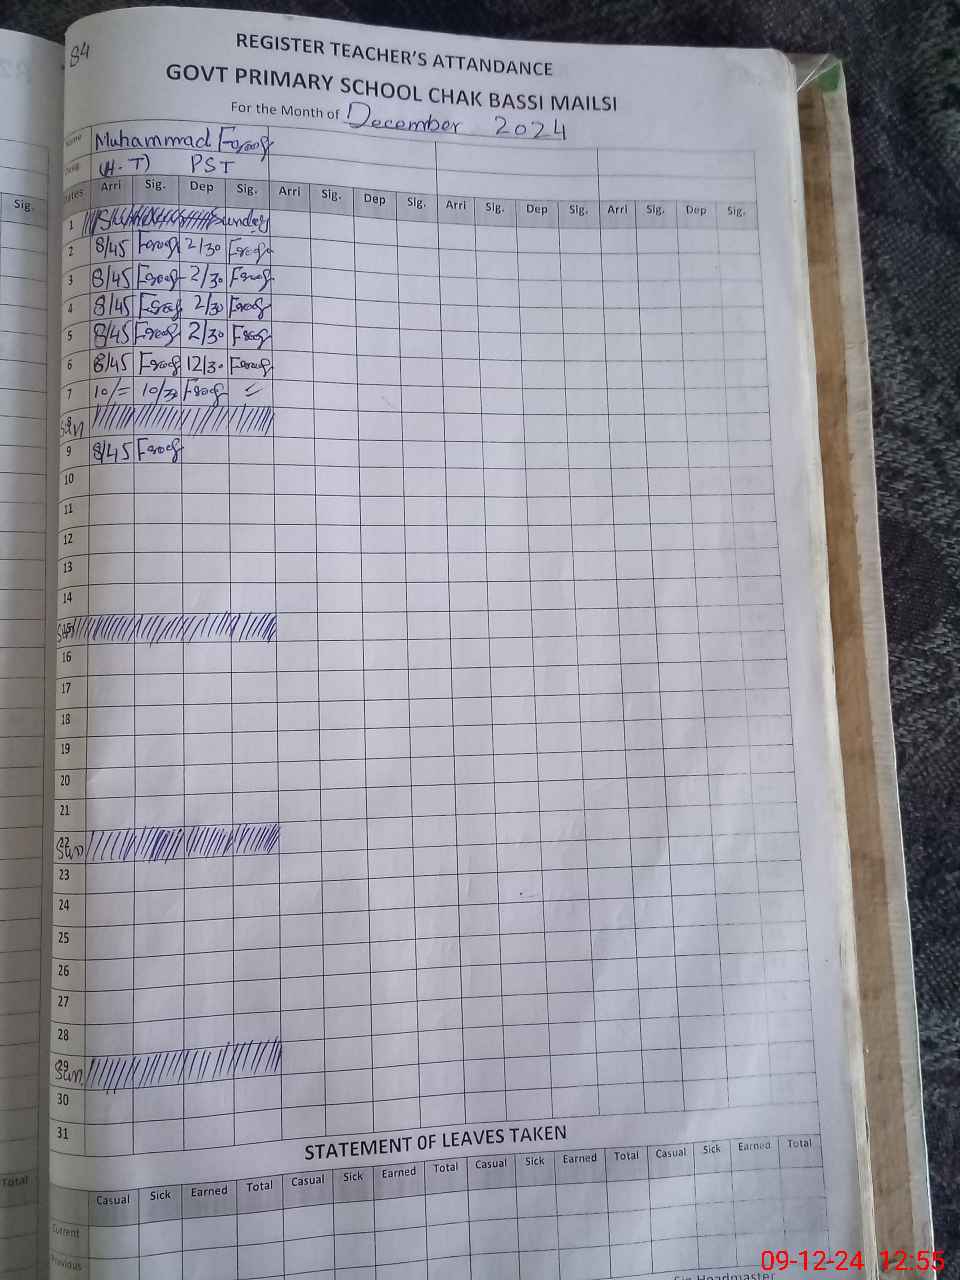 84
REGISTER TEACHER'S ATTANDANCE
GOVT PRIMARY SCHOOL CHAK BASSI MAILSI
For the Month of December 2024
Name Muhammad Farooq
(H.T) PST
Sig.
Dates Arri Sig. Dep Sig. Arri Sig. Dep Sig. Arri Sig. Dep Sig. Arri Sig. Dep Sig.
1 Sunday
2 8/45 Farooq 2/30 Farooq
3 8/45 Farooq 2/30 Farooq
4 8/45 Farooq 2/30 Farooq
5 8/45 Farooq 2/30 Farooq
6 8/45 Farooq 12/30 Farooq
7 10/= 10/30 Farooq =
8 Sun
9 8/45 Farooq
10
11
12
13
14
15 Sun
16
17
18
19
20
21
22 Sun
23
24
25
26
27
28
29 Sun
30
31
STATEMENT OF LEAVES TAKEN
Total
Casual Sick Earned Total Casual Sick Earned Total Casual Sick Earned Total Casual Sick Earned Total
Current
Previous
Headmaster
09-12-24 12:55